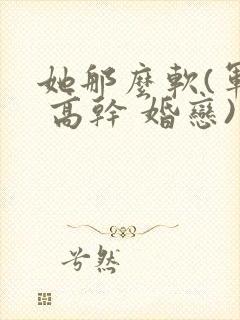 她那麼軟(軍
高幹 婚戀)
兮然